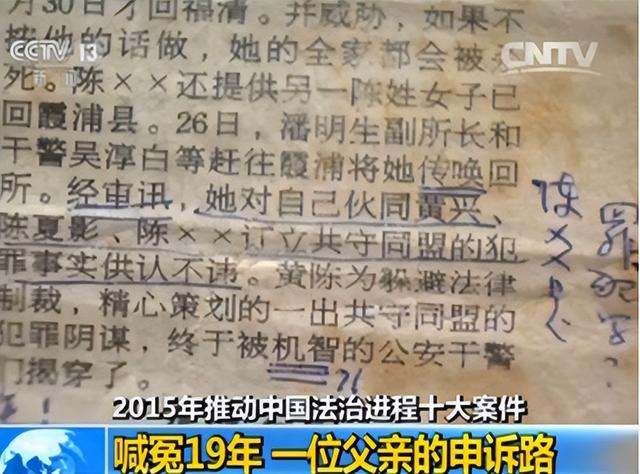 月30日才回福清。并威胁，如果不
按他的话做，她的全家都会被
死。陈××还提供另一陈姓女子已
回霞浦县。26日，潘明生副所长和
干警吴淳白等赶往霞浦将她传唤回
所。经审讯，她对自己伙同黄兴、
陈夏影、陈××订立共守同盟的犯
罪事实供认不讳。黄陈为躲避法律
制裁，精心策划的一出共守同盟的
犯罪阴谋，终于被机智的公安干警
们揭穿了。
CCTV 13
新闻
CNTV
2015年推动中国法治进程十大案件
喊冤19年 一位父亲的申诉路